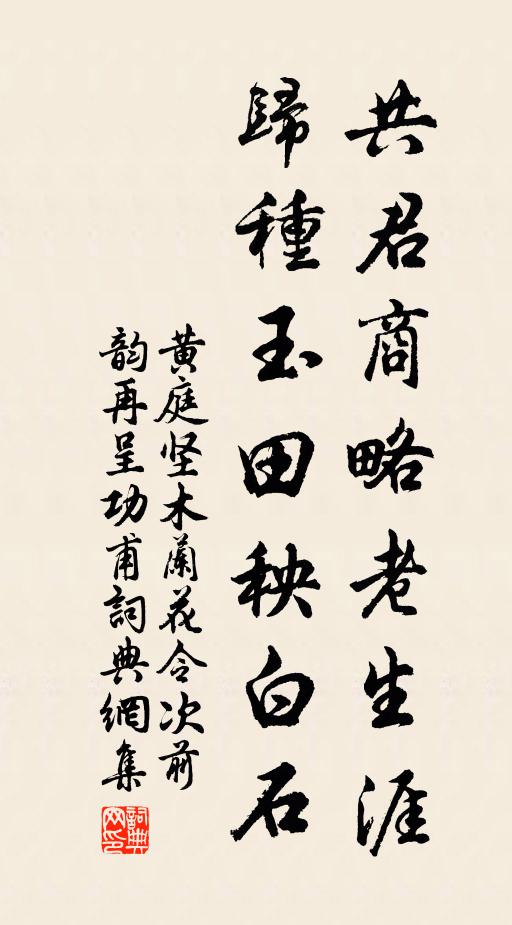 共君商略老生涯
歸種玉田秧白石
黄庭坚木蘭花令次前
韵再呈功甫詞典網集
詞典网印